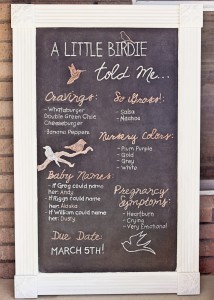 A LITTLE BIRDIE
told Me...
Cravings:
- Whataburger
Double Green Chile
Cheeseburger
- Banana Peppers
So Gross!
- Salsa
- Nachos
Nursery Colors:
- Plum Purple
- Gold
- Grey
- White
Baby Names
- If Greg could name
her: Andy
- If Riggs could name
her: Alaska
- If William could name
her: Dusty
Pregnancy
Symptoms:
- Heartburn
- Crying
- Very Emotional
Due Date:
MARCH 5TH!